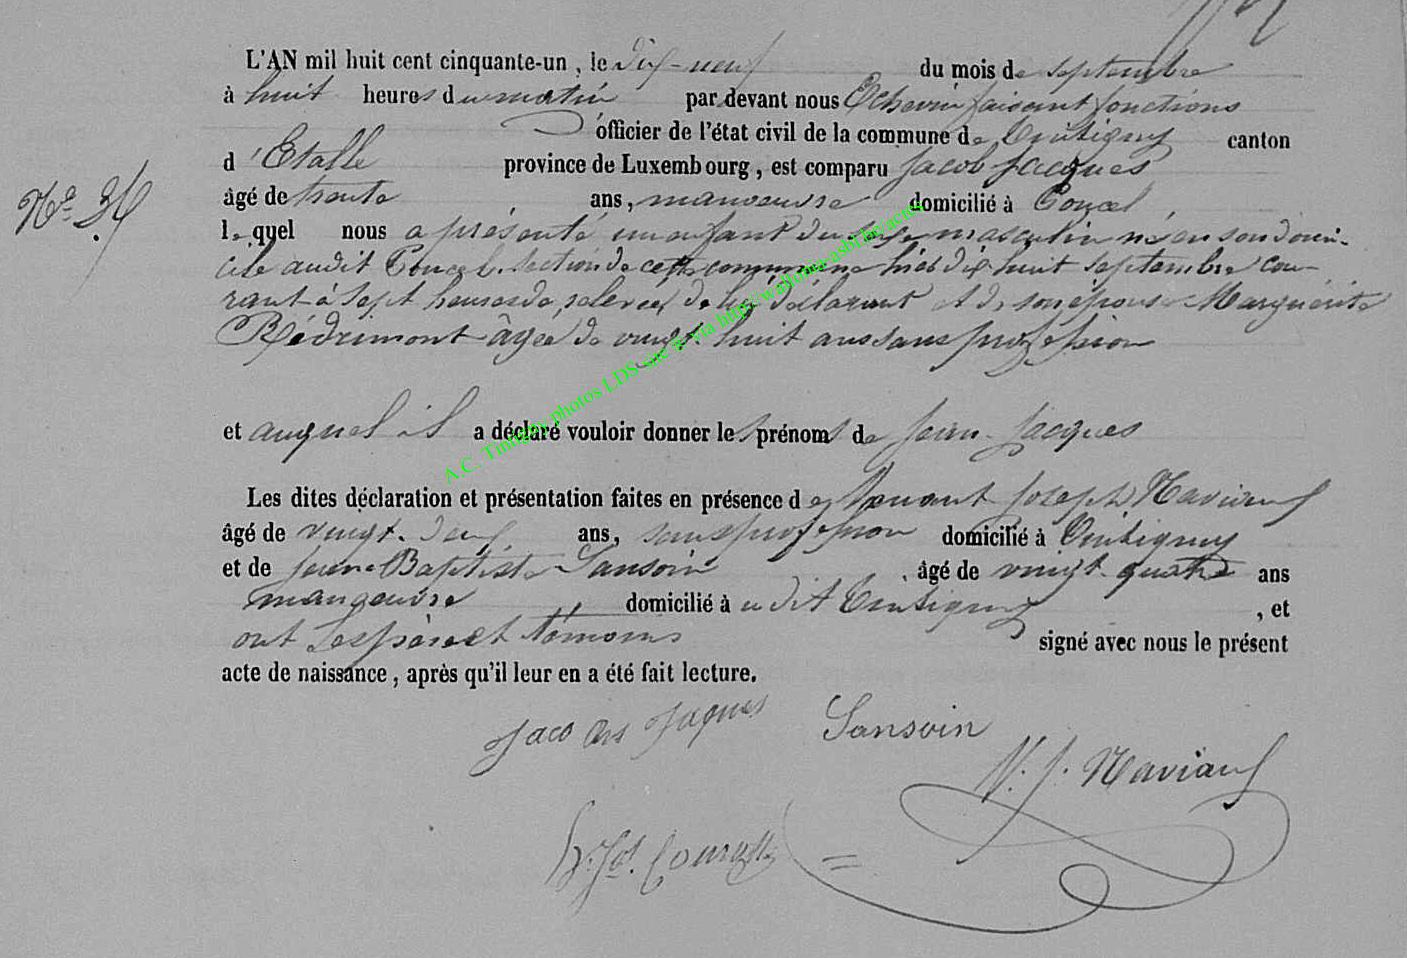 L'AN mil huit cent cinquante-un, le dix-neuf du mois de septembre
à huit heures du matin par devant nous Echevin faisant fonctions
officier de l'état civil de la commune de Tintigny canton
d'Etalle province de Luxembourg, est comparu Jacob Jacques
âgé de trente ans, manoeuvre domicilié à Poncel,
lequel nous a présenté un enfant du sexe masculin né en son domi-
cile audit Poncel, section de cette commune hier dix huit septembre cou-
rant à sept heures de relevée, de lui déclarant et de son épouse Marguérite
Rédrimont âgée de vingt huit ans sans profession
N° 34
et auquel il a déclaré vouloir donner les prénoms de Jean-Jacques
Les dites déclaration et présentation faites en présence de Joseph
âgé de vingt-deux ans, sans profession domicilié à Tintigny
et de Jean-Baptiste Sansoin âgé de vingt-quatre ans
manoeuvre domicilié audit Tintigny, et
ont les père et témoins signé avec nous le présent
acte de naissance, après qu'il leur en a été fait lecture.
Jacques Sansoin
A.C. Tintigny photos LDS via http://wallonia-asbl.be/actes